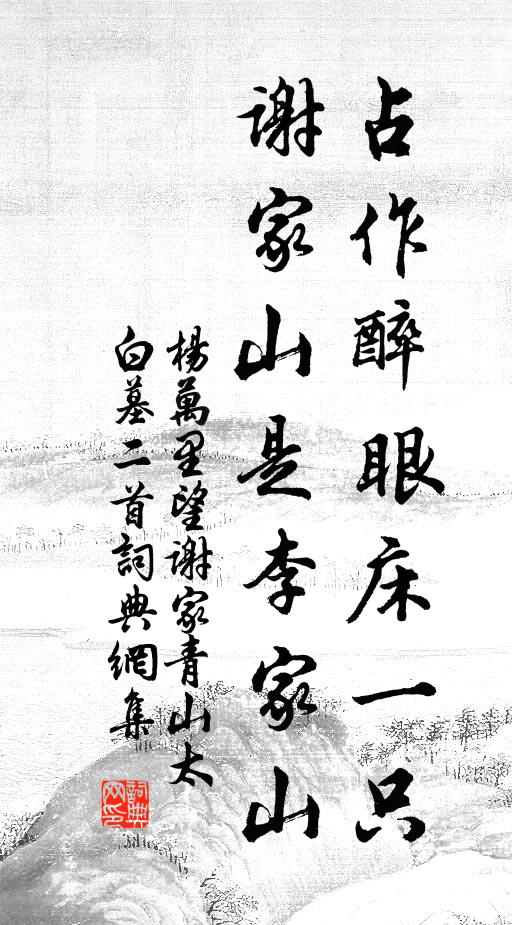 占作醉眼床一只
謝家山是李家山
楊萬里望謝家青山太
白墓二首詞典網集
詞典
网印